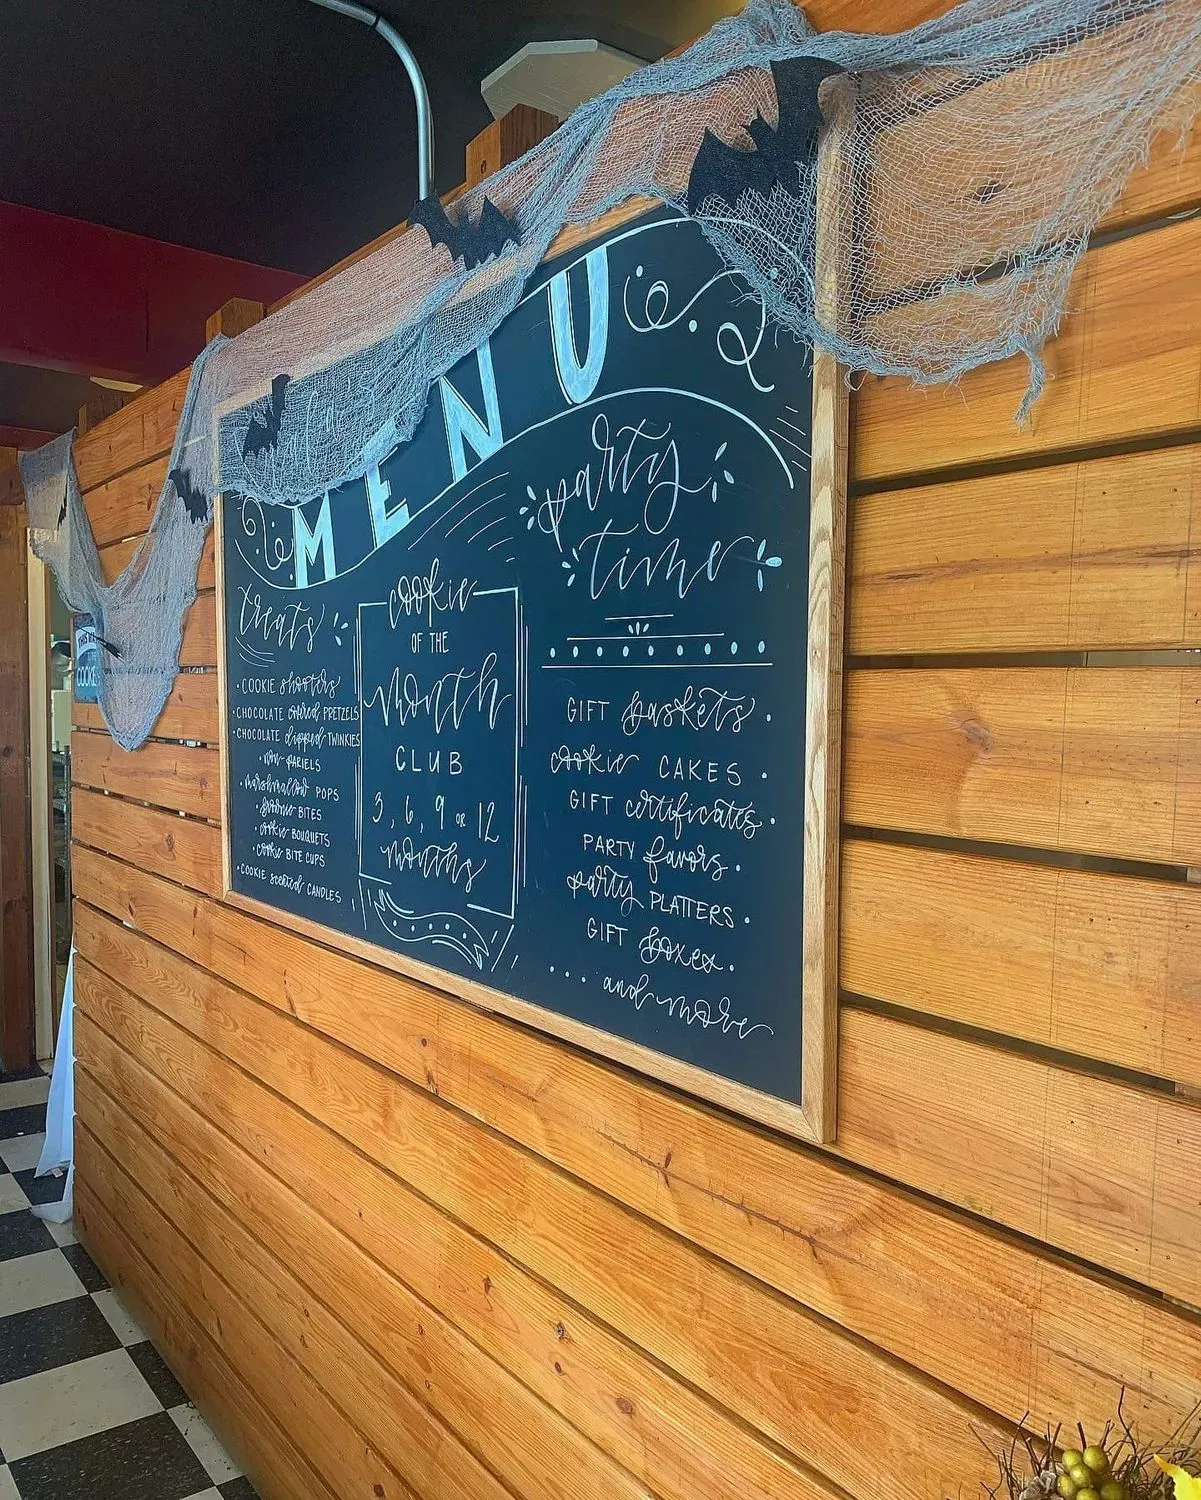 MENU
treats
• COOKIE shooters
• CHOCOLATE covered PRETZELS
• CHOCOLATE dipped TWINKIES
• non PARIELS
• marshmallow POPS
• brownie BITES
• cookie BOUQUETS
• cookie BITE CUPS
• COOKIE scented CANDLES
cookie
OF THE
Month
CLUB
3, 6, 9 or 12
months
party
time
GIFT baskets •
cookie CAKES •
GIFT certificates •
PARTY favors •
party PLATTERS •
GIFT boxes •
... and more
COOKIE